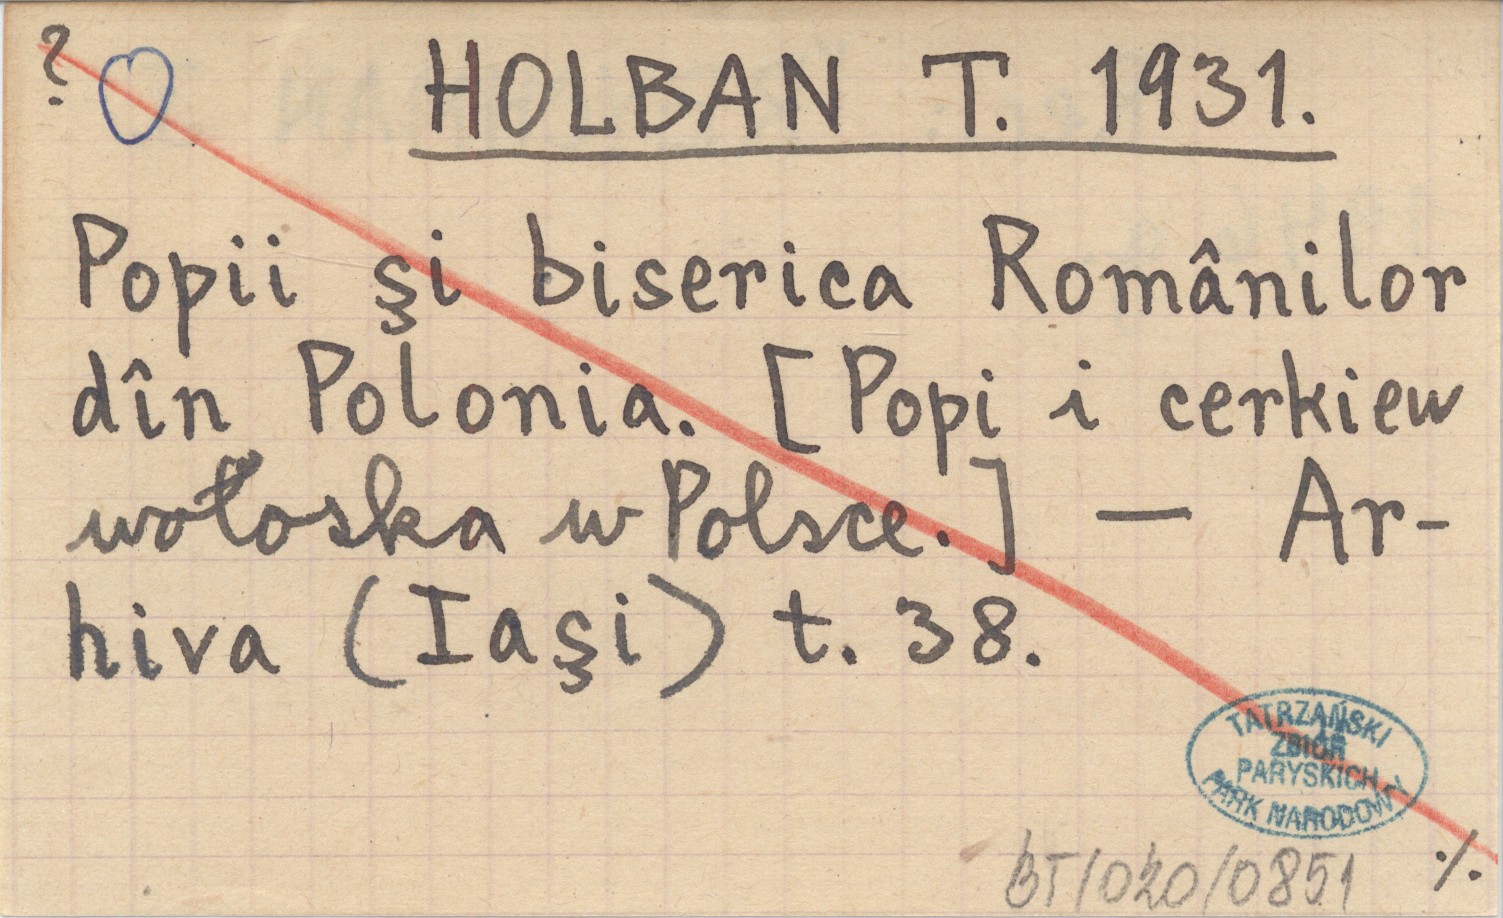 ? HOLBAN T. 1931.
Popii şi biserica Românilor
dîn Polonia. [Popi i cerkiew
wołoska w Polsce.] — Ar-
hiva (Iaşi) t. 38.
TATRZAŃSKI
ZBIÓR
PARYSKICH
PARK NARODOWY
BT/020/0851
./.